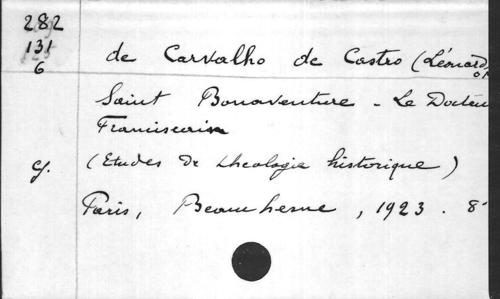 282
131
6
de Carvalho de Castro (Léonard
Saint Bonaventure - Le Docteu
Franciscain
cf. (Etudes de theologie historique)
Paris, Beauchesne, 1923. 8°